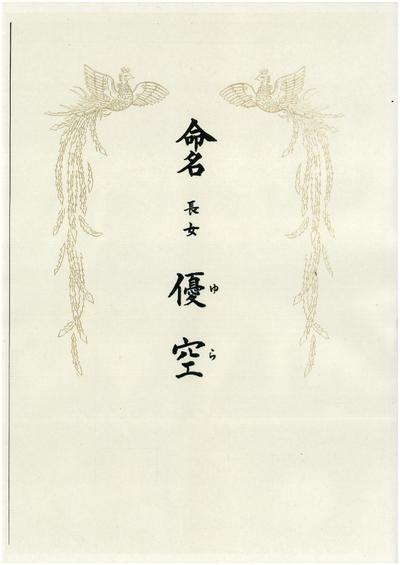 命名
長女
優空
ゆら